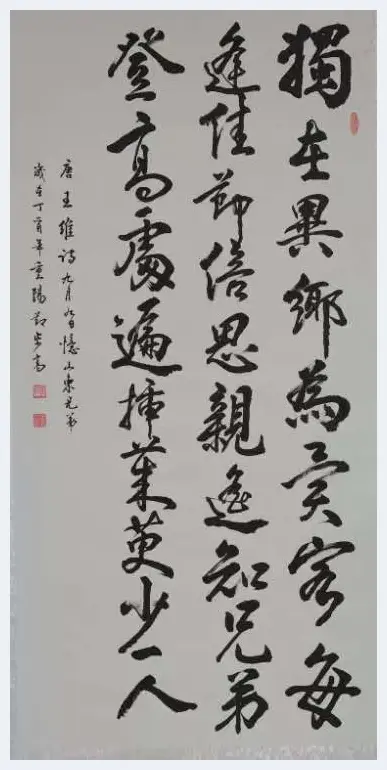 獨在異鄉為異客每
逢佳節倍思親遙知兄弟
登高處遍插茱萸少一人
唐王維詩九月九日憶山東兄弟
歲在丁酉年重陽步高